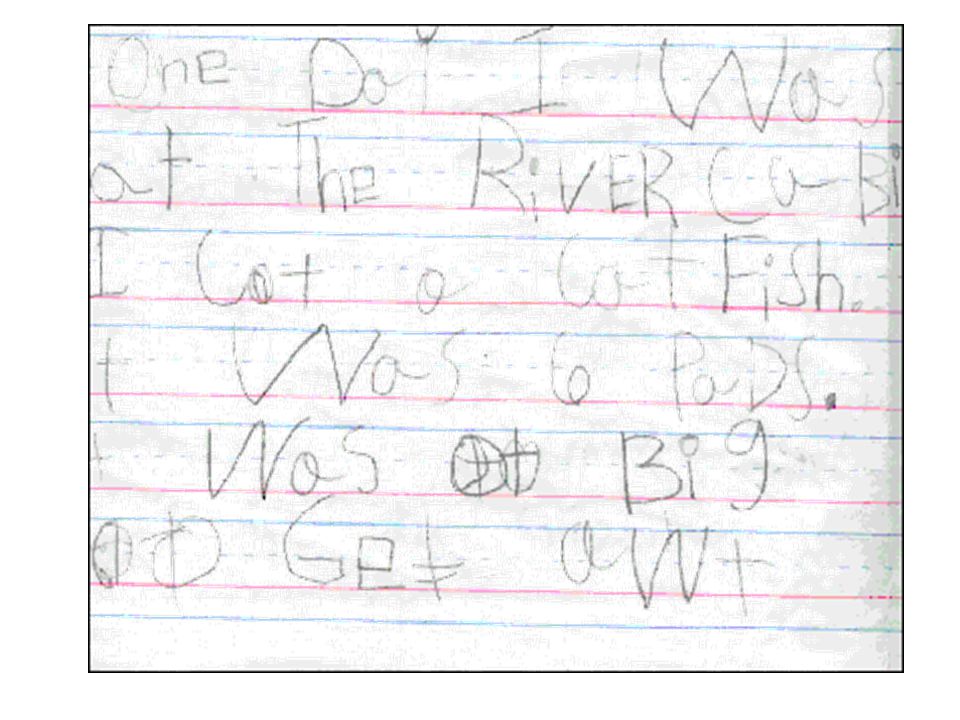 One Day I Was
at The RiVER Ca Bi
I Cot a Cat Fish.
t Was 6 PaDS.
t Was Big
GEt aWt